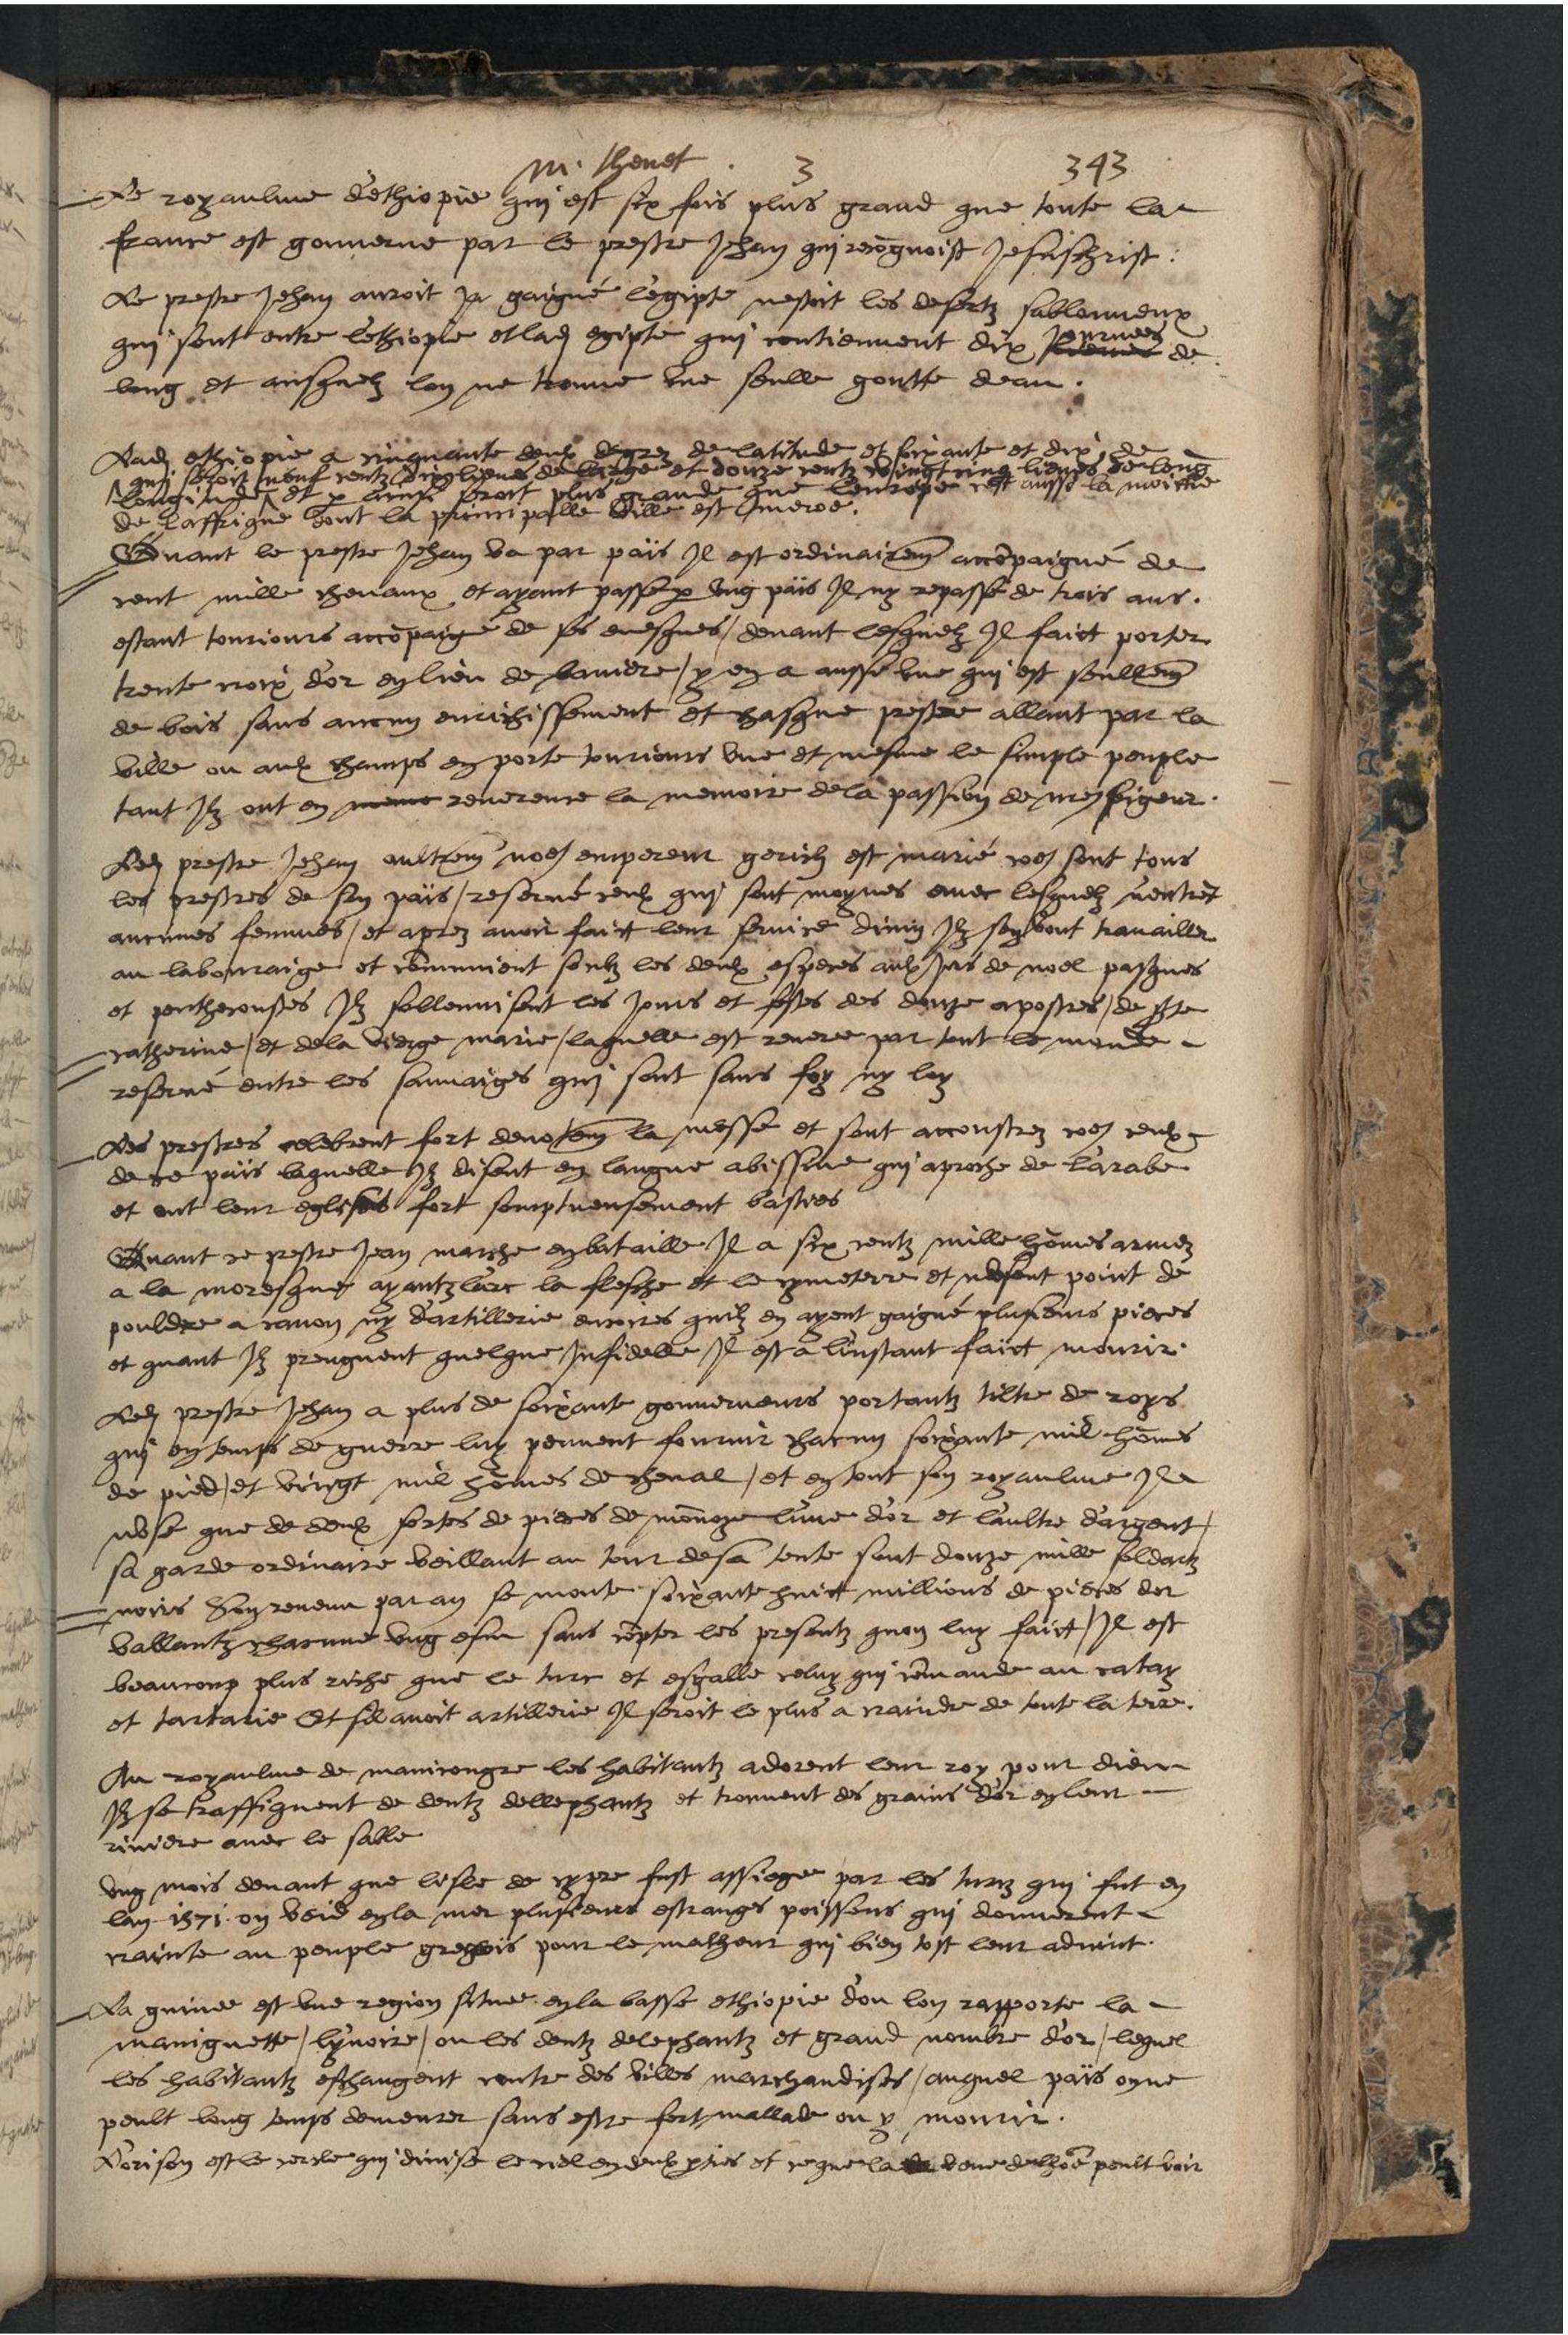 m. thevet . 3 343
Le royaulme dethiopie qui est six fois plus grand que toute la
france est gouverne par le prestre Jehan qui recongnoist Jesuschrist :
Le prestre Jehan auroit Ja gaigné legipte nestoit les desertz sablonneux
qui sont entre lethiopie et lad egipte qui contiennent dix Journees de
long et ausquelz lon ne trouve une seulle goutte deau .
Lad ethiopie a cinquante deux degrez de latitude et soixante et dix de
qui seroit neuf centz dix lieues de large et douze centz vingt cinq lieues de long
longitude et p ainsi seroit plus grande que leurope cest aussi la moictie
de laffrique dont la principalle ville est meroe .
Quant le prestre Jehan va par païs Il est ordinairem accõpaigné de
cent mille chevaux et ayant passé p ung païs Il ny repasse de trois ans .
estant tousiours accõpaigé de ses evesques / devant lesquelz Il faict porter
trente croix dor en lieu de baniere / y en a aussi une qui est seullem
de bois sans aucun enrichissement et chasque prestre allant par la
ville ou aux champs en porte tousiours une et mesme le simple peuple
tant Ilz ont en reverence la memoire dela passion de nre seigeur .
Led prestre Jehan aultrem noe emperem gerich est marié coe sont tous
les prestres de son païs / reservé ceulx qui sont moynes avec lesquelz nentrẽt
aucunes femmes / et aprez avoir faict leur service divin Ilz sen vont travailler
au labouraige et cõmunient soubz les deulx especes aulx Jors de noel pasques
et penthecoustes Ilz sollennisent les Jours et festes des douze apostres / de ste
catherine / et dela vierge marie / laquelle est reveree par tout le monde
reservé entre les sauvaiges qui sont sans foy ny loy
Les prestres celebrent fort devotem la messe et sont accoustrez coe ceulx
de ce païs laquelle Ilz disent en langue abissine qui aproche de larabe
et ont leur eglises fort somptueusement basties
Quant ce prestre Jean marche en bataille Il a six centz mille hõmes armez
a la moresque ayantz larc la flesche et le cymeterre et nusent point de
pouldre a canon ny dartillerie encores quilz en ayent gaigné plusieurs pieces
et quant Ilz prengnent quelque Infidelle Il est a linstant faict mourir .
Led prestre Jehan a plus de soixante gouverneurs portantz tiltre de roys
qui en temps de guerre luy peuvent fournir chacun soixante mil hõmes
de pied / et vingt mil hõmes de cheval / et en tout son royaulme Il
nuse que de deux sortes de pieces de mõnoye lune dor et laultre dargent /
sa garde ordinaire veillant au tour de sa tente sont douze mille soldartz
noirs son revenu par an se monte soixante huict millions de pieces dor
vallantz chacune ung escu sans cõpter les presentz quon luy faict / Il est
beaucoup plus riche que le turc et esgalle celuy qui cõmande au catay
et tartarie Et sil avoit artillerie Il seroit le plus a craindre de toute la terre .
Au royaulme de manicongre les habitantz adorent leur roy pour dieu
Ilz se traffiquent de dentz dellephantz et trouvent des grains dor en leur
riviere avec le sable
Ung mois devant que lisle de cypre fust assiegee par les turcz qui fut en
lan 1571 . on veid en la mer plusieurs estranges poissons qui donnerent
crainte au peuple gregeois pour le malheur qui bien tost leur advint .
La guinee est une region situee en la basse ethiopie dou lon rapporte la
maniguette / lyvoire / ou les dentz delephantz et grand nombre dor / lequel
les habitantz eschangent contre des villes marchandises / auquel païs on ne
peult long temps demeurer sans estre fort mallade ou y mourir .
Lorison est le cercle qui divise le ciel en deulx pties et ce que la veue de lhoẽ peult voir